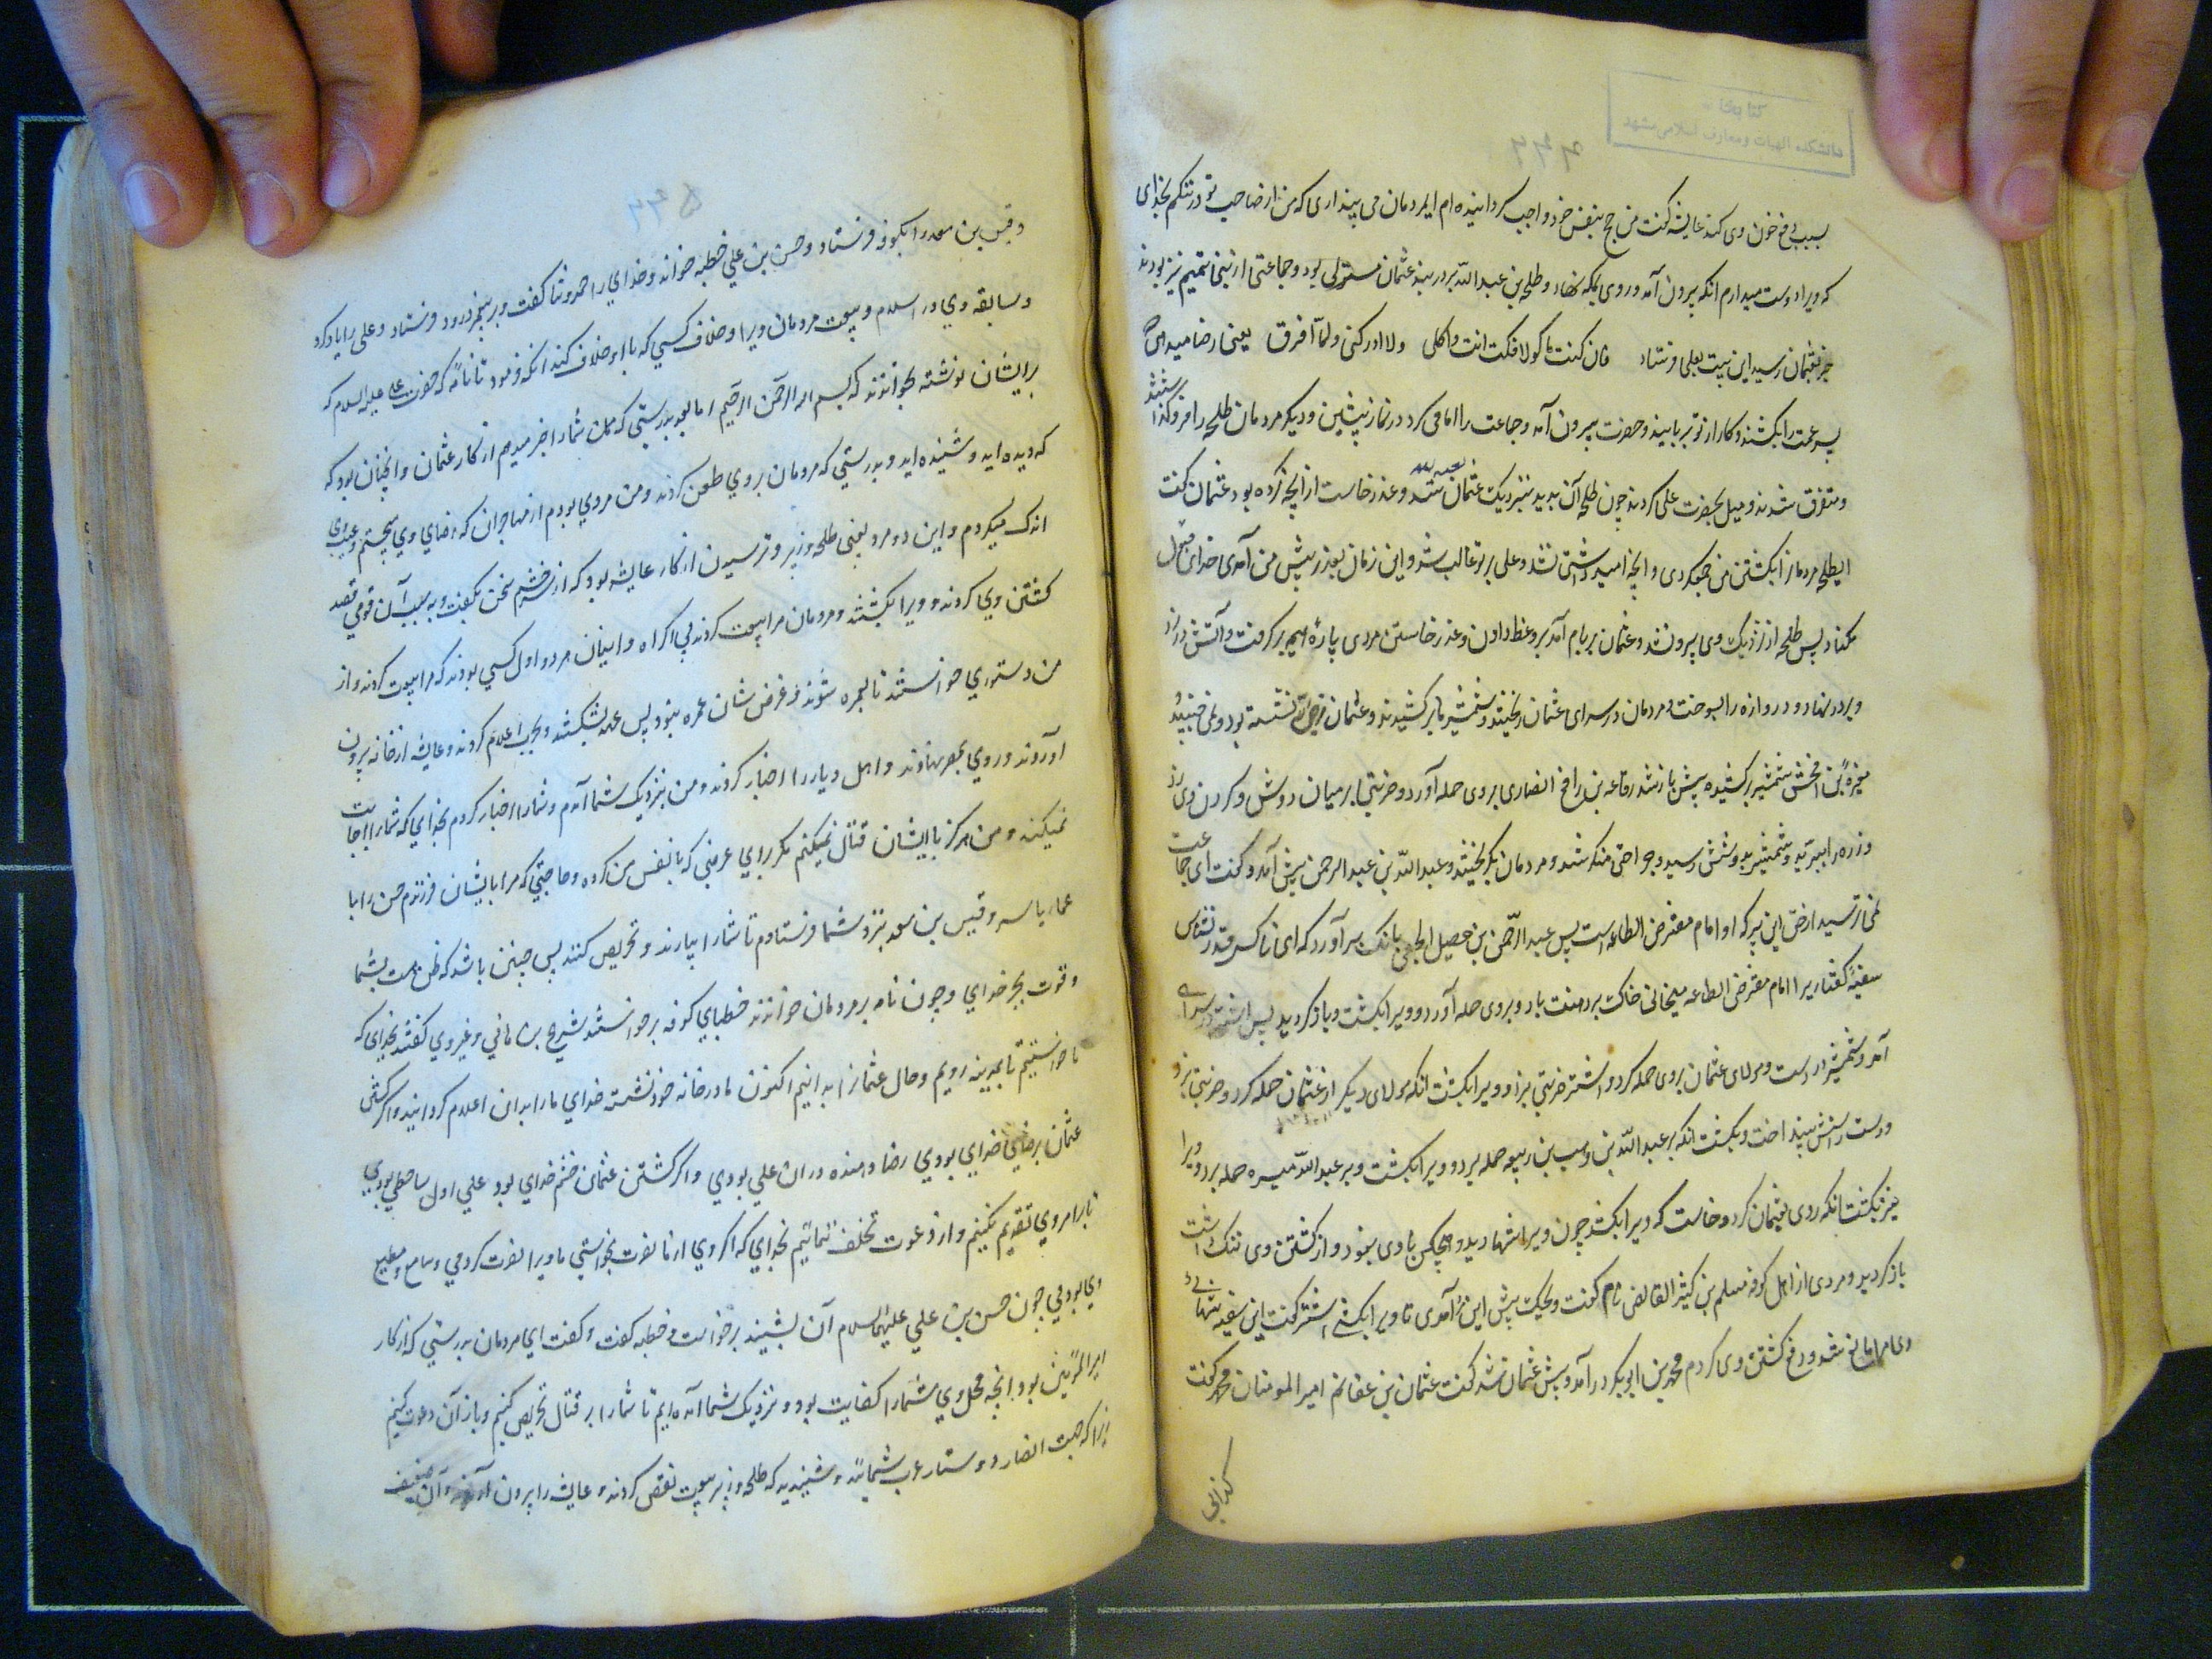 کتابخانه
دانشکده الهیات و معارف اسلامی مشهد
بسبب دفع خون وی کند عایشه کفت من حج بنفس خود واجب کردانیده ام ایمردمان می پنداری که من از صاحب تو در شکم بخدای
که ویرا دوست میدارم انکه بیرون آمد و روی بمکه نهاد و طلحه بن عبد اللّه بردر بند عثمان مستولی بود و جماعتی از بنی تمیم نیز بودند
خبر بعثمان رسید این بیت بعلی فرستاد فان کنت ماکولا فکن انت واکلی ولا ادرکنی ولما افرق یعنی رضا میدهی
پسر عمت را بکشند و کار از تو بربایند و حضرت بیرون آمد و جماعت را امامی کرد در نماز پیشین و دیکر مردمان طلحه را فرو کذاشتند
و متفرق شدند و میل بحضرت علی کردند چون طلحه آن بدید بنزدیک عثمان شد و عذر خاست از انچه کرده بود عثمان کفت
ایطلحه مردمانرا بکشتن من جمع کردی و انچه امید داشتی نشد و علی بر تو غالب شد و این زمان بعذر پیش من آمدی خدای قبول
مکناد پس طلحه از نزدیک وی بیرون شد و عثمان بر بام آمد بر وعظ دادن و عذر خاستن مردی پارهٔ هیمه بر کرفت و آتش در زد
و بر در نهاد و دروازه را بسوخت مردمان در سرای عثمان ریختند و شمشیرها بر کشیدند و عثمان نشسته بود و نمی جنبید
مغیرة بن اخنش شمشیر بر کشیده پیش باز شد رفاعه بن رافع انصاری بر وی حمله آورد و ضربتی بر میان دوش و کردن وی زد
و زره را ببرید و شمشیر بدوشش رسید و جراحتی منکر شد و مردمان بکریختند و عبد اللّه بن عبد الرحمن پیش آمد و کفت ای جماعت
نمی ترسید از حق این پیر که او امام مفترض الطاعه است پس عبد الرّحمن بن حصیل الجمحی بانک بر آورد که ای ناکس
سفیه کفتار پیرا امام مفترض الطاعه میخانی خاکت بر دهنت باد و بر وی حمله آورد و ویرا بکشت و باز کردید پس اشتر در سرای
آمد و شمشیر در دست و مولای عثمان بروی حمله کرد و اشتر ضربتی بزد و ویرا بکشت انکه مولای دیکر از عثمان حمله کرد و ضربتی بزد
و دست راستش بینداخت و بکشت انکه بر عبد اللّه بن وهب بن ربیعه حمله برد و ویرا بکشت و بر عبد اللّه میسره حمله برد و ویرا
نیز بکشت انکه روی بعثمان کرد و خاست که ویرا بکشد چون ویرا تنها دید و هیچکس با وی نبود و از کشتن وی ننک داشت
باز کردید و مردی از اهل کوفه مسلم بن کثیر القابض نام کفت ویحک پیش این مرد آمدی تا ویرا بکشی اشتر کفت این سفیه تنهایی
وی مرا مانع شد و دفع کشتن وی کردم محمد بن ابوبکر در آمد و پیش عثمان شد کفت عثمان بن عفانم امیر المومنان محمد کفت
کذابی
و قیس بن سعد را بکوفه فرستاد و حسن بن علی خطبه خواند و خدای را حمد و ثنا کفت و بر پیغمبر درود فرستاد و علی را یاد کرد
و سابقه وی در اسلام و بیعت مردمان ویرا و خلاف کسی که با او خلاف کند انکه فرمود تا نامه که حضرت علی علیه السلام که
بدیشان نوشته بخواندند که بسم الله الرّحمن الرّحیم اما بعد بدرستی که من شما را خبر میدهم از کار عثمان و انچنان بود که
که دیده اید و شنیده اید و بدرستی که مردمان بر وی طعن کردند و من مردی بودم از مهاجران که رضای وی میجستم و عیب وی
اندک میکردم و این دو مرد یعنی طلحه و زبیر و ترسیدن از کار عایشه بود که از سر خشم سخن بکفت و به سبب آن قومی قصد
کشتن وی کردند و ویرا بکشتند و مردمان مرا بیعت کردند بی اکراه و اینان هر دو اول کسی بودند که مرا بیعت کردند و از
من دستوری خواستند تا بعمره شوند و غرض شان عمره نبود پس عهد بشکستند و بحرب اعلام کردند و عایشه از خانه بیرون
آوردند و روی ببصره نهادند و اهل دیار را اخبار کردند و من بنزدیک شما آمدم و شما را اخبار کردم بخدای که شما را اجابت
نمیکنند و من هرکز با ایشان قتال نمیکنم مکر برای عرضی که با نفس من کرده و حاجتی که مرا با ایشان فرزندم حسن را با
عمار یاسر و قیس بن سعد بنزد شما فرستادم تا شما را بیارند و تحریص کنند پس چنین باشد که ظن هست بشما
و قوت بجز خدای و چون نامه بر مردمان خواندند خطبای کوفه بر خواستند شریح بن هانی و غیر وی کفتند بخدای که
ما خواستیم تا بمدینه رویم و حال عثمانرا بدانیم اکنون ما در خانه خود نشسته خدای ما را بدان اعلام کردانید و اکر کشتن
عثمان برضای خدای بودی رضا دهنده در ان علی بودی و اکر کشتن عثمان خشم خدای بود علی اول ساخطی بودی
ما بر امر وی تقدیم نکنیم و از دعوت تخلف ننمائیم بخدای که اکر وی از ما نصرت نخواستی ما ویرا نصرت کردمی و سامع و مطیع
وی بودمی چون حسن بن علی علیهما السلام آن بشنید برخواست و خطبه کفت و کفت ای مردمان بدرستی که از کار
امیر المؤمنین بود انچه مجمل وی شما را کفایت بود و بنزدیک شما آمده ایم تا شما را بر قتال تحریص کنیم و بازآن دعوت کنیم
زیرا که انصار و دستار عرب شمائید و شنیدید که طلحه و زبیر بیعت نقض کردند و عایشه را بیرون آوردند و آن ضعیف